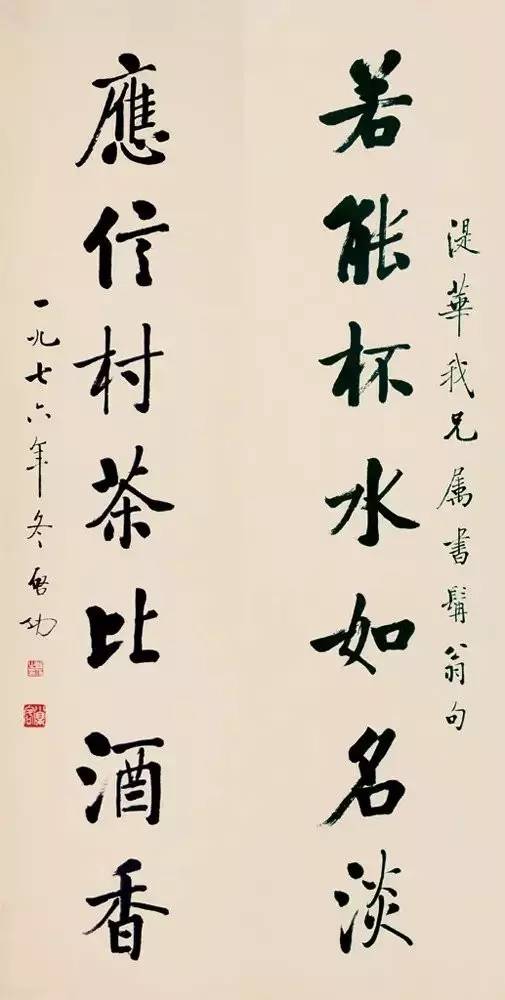 湜華我兄属書髯翁句
若能杯水如名淡
應信村茶比酒香
一九七六年冬啓功